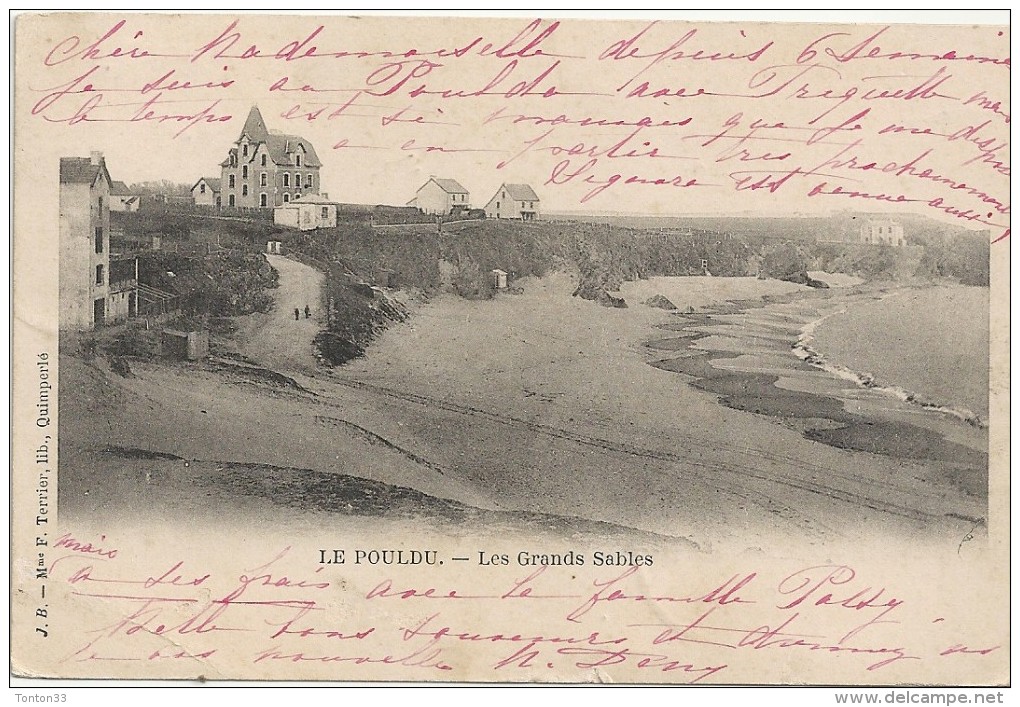 Chère Mademoiselle depuis 6 Semaine
Je suis au Pouldu avec Triquette mais
le temps est si mauvais que je me dispose
a en partir tres prochainement
est venue aussi
LE POULDU. — Les Grands Sables
J. B. — Mme F. Terrier, lib., Quimperlé
mais
a ses frais avec la famille
Mille bons souvenirs et donnez
de vos nouvelles
Tonton33
www.delcampe.net